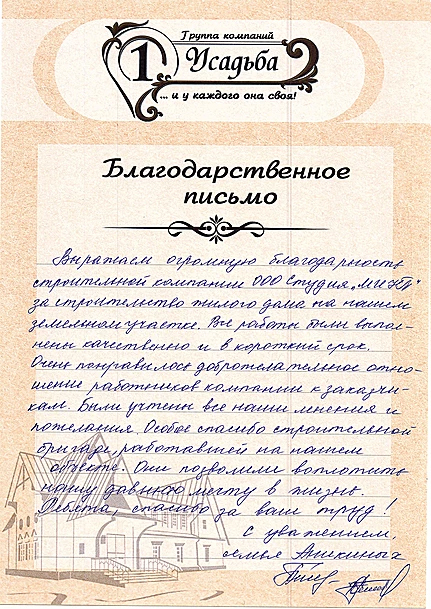 Группа компаний
1 Усадьба
...и у каждого она своя!
Благодарственное
письмо
Выражаем огромную благодарность
строительной компании ООО Студия
за строительство жилого дома на нашем
земельном участке. Все работы были выпол-
нены качественно и в короткий срок.
Очень понравилось доброжелательное отно-
шение работников компании к заказчи-
кам. Были учтены все наши мнения и
пожелания. Особое спасибо строительной
бригаде, работавшей на нашем
объекте. Они позволили воплотить
нашу давнюю мечту в жизнь.
Ребята, спасибо за ваш труд!
С уважением,
семья Аникиных